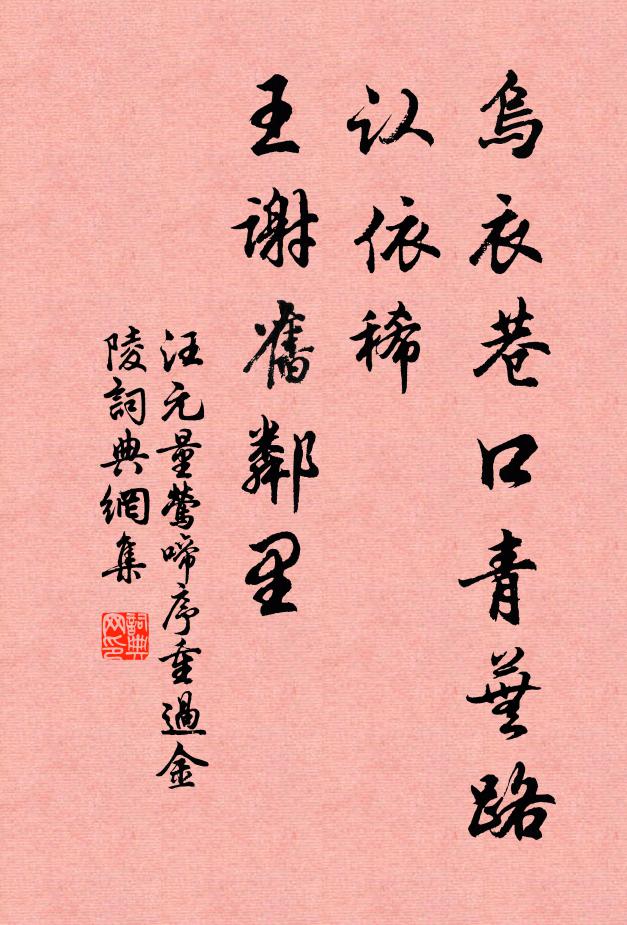 烏衣巷口青蕪路
认依稀
王謝舊鄰里
汪元量鶯啼序重過金
陵詞典網集
詞典网印